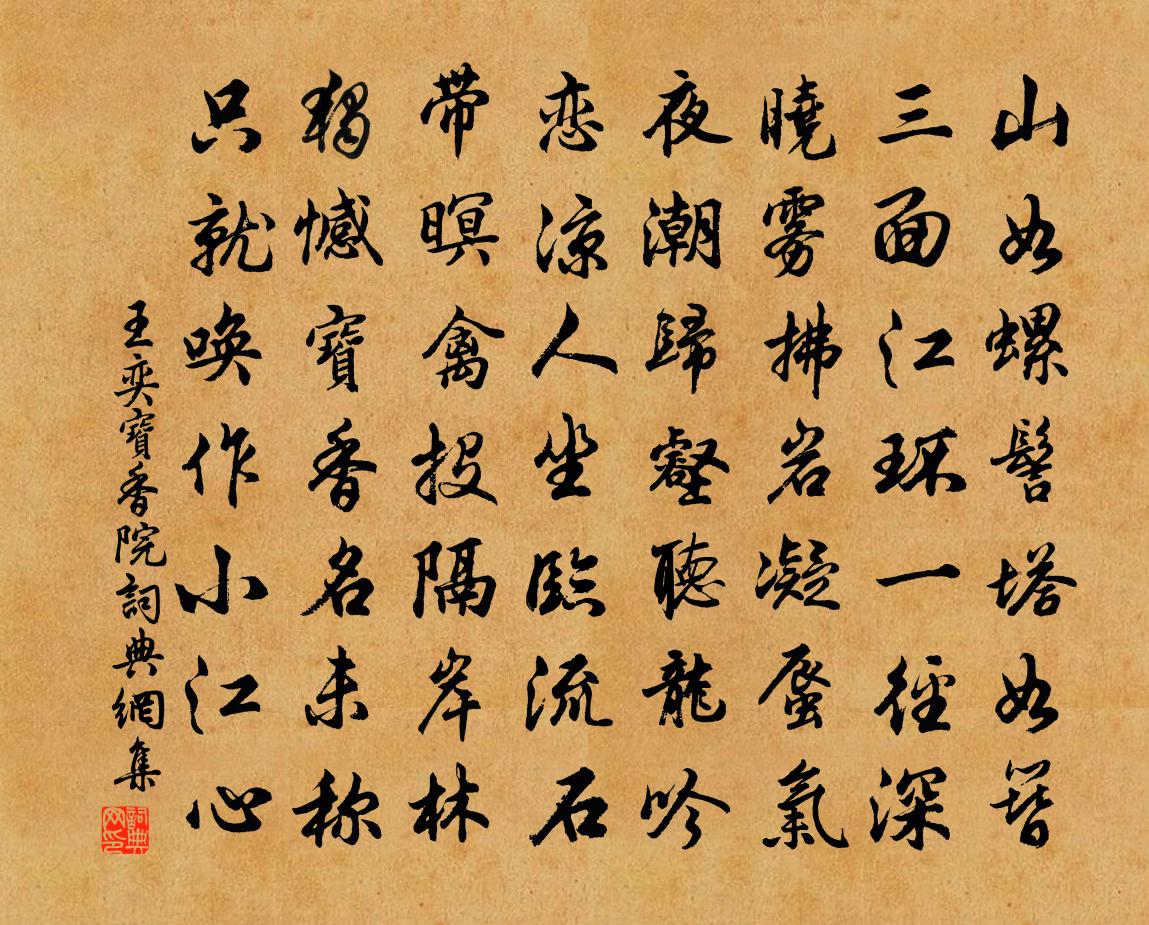 山如螺髻塔如簪
三面江环一径深
曉雾拂岩凝蜃氣
夜潮歸壑聽龍吟
恋凉人坐臨流石
带暝禽投隔岸林
独憾寶香名未称
只就唤作小江心
王奕寶香院詞典網集
詞典网印